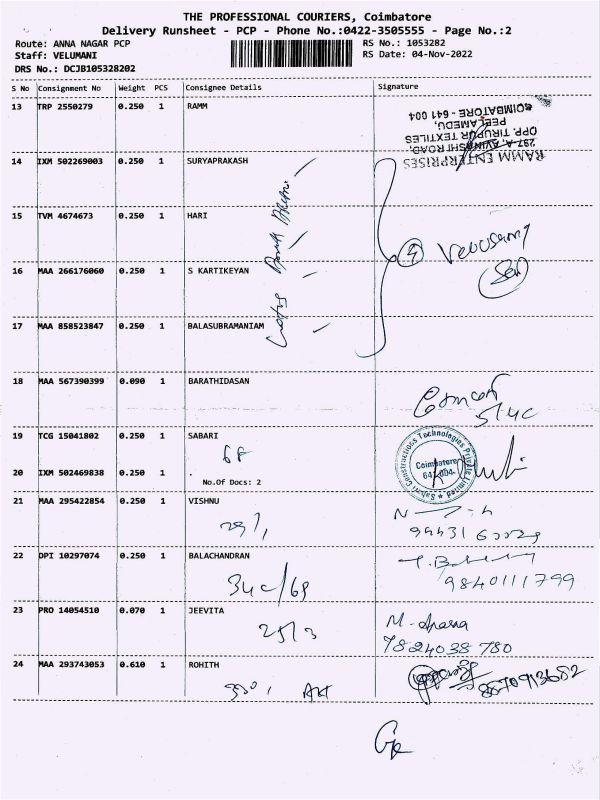 THE PROFESSIONAL COURIERS, Coimbatore
Delivery Runsheet - PCP - Phone No.:0422-3505555 - Page No.:2
Route: ANNA NAGAR PCP
Staff: VELUMANI
DRS No.: DCJB105328202
RS No.: 1053282
RS Date: 04-Nov-2022
S No Consignment No Weight PCS Consignee Details Signature
13 TRP 2550279 0.250 1 RAMM
RAMM ENTERPRISES
297-A, AVINASHI ROAD,
OPP. TIRUPUR TEXTILES
PEELAMEDU,
COIMBATORE - 641 004
14 IXM 502269003 0.250 1 SURYAPRAKASH
15 TVM 4674673 0.250 1 HARI
4
16 MAA 266176060 0.250 1 S KARTIKEYAN
17 MAA 858523847 0.250 1 BALASUBRAMANIAM
18 MAA 567390399 0.090 1 BARATHIDASAN
19 TCG 15041802 0.250 1 SABARI
6F
Sabari Constructions Technologies Private Limited
Coimbatore
641 004.
20 IXM 502469838 0.250 1 .
No.Of Docs: 2
21 MAA 295422854 0.250 1 VISHNU
22 DPI 10297074 0.250 1 BALACHANDRAN
9840111799
23 PRO 14054510 0.070 1 JEEVITA
25/3
7824038 780
24 MAA 293743053 0.610 1 ROHITH
8570913682